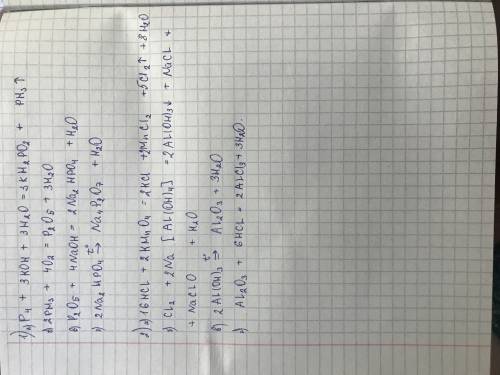 1) а) P₄ + 3KOH + 3H₂O = 3KH₂PO₂ + PH₃↑
б) 2PH₃ + 4O₂ = P₂O₅ + 3H₂O
в) P₂O₅ + 4NaOH = 2Na₂HPO₄ + H₂O
г) 2Na₂HPO₄ t°→ Na₄P₂O₇ + H₂O
2) а) 16HCl + 2KMnO₄ = 2KCl + 2MnCl₂ + 5Cl₂↑ + 8H₂O
б) Cl₂ + 2Na[Al(OH)₄] = 2Al(OH)₃↓ + NaCl +
+ NaClO + H₂O
в) 2Al(OH)₃ t°→ Al₂O₃ + 3H₂O
г) Al₂O₃ + 6HCl = 2AlCl₃ + 3H₂O.